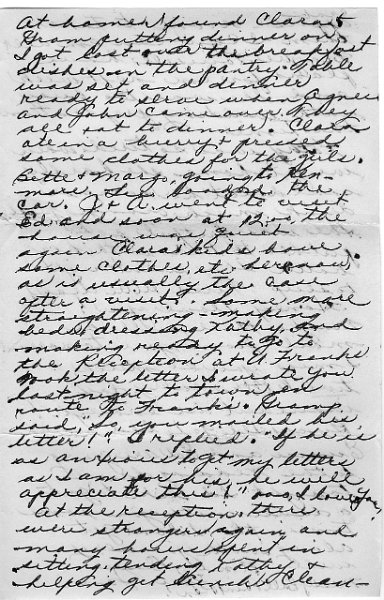 At home I found Clara &
Gram putting dinner on.
I put last over the breakfast
dishes in the pantry. Table
was set and dinner
ready to serve when Agnes
and John came over. They
all sat to dinner. Clara
ate in a hurry & pressed
some clothes for the girls.
Bette & Marg. going to Ken-
mare. the
car. J. & A. went to visit
Ed and soon at 12:00 the
house was quiet
again. Clara's kids have
some clothes, etc. here now,
as is usually the case
after a visit. Some more
straightening - making
beds, dressing Kathy, and
making ready to go to
the Reception at A. Franks
Took the letter I wrote you
last night to town en
route to Franks'. Gramp
said, "So, you mailed his
letter!" I replied. "If he is
as anxious to get my letters
as I am for his, he will
appreciate this!" I love you,
At the reception there
were strangers again and
many hours spent in
sitting, tending Kathy &
helping get lunch & Clean-